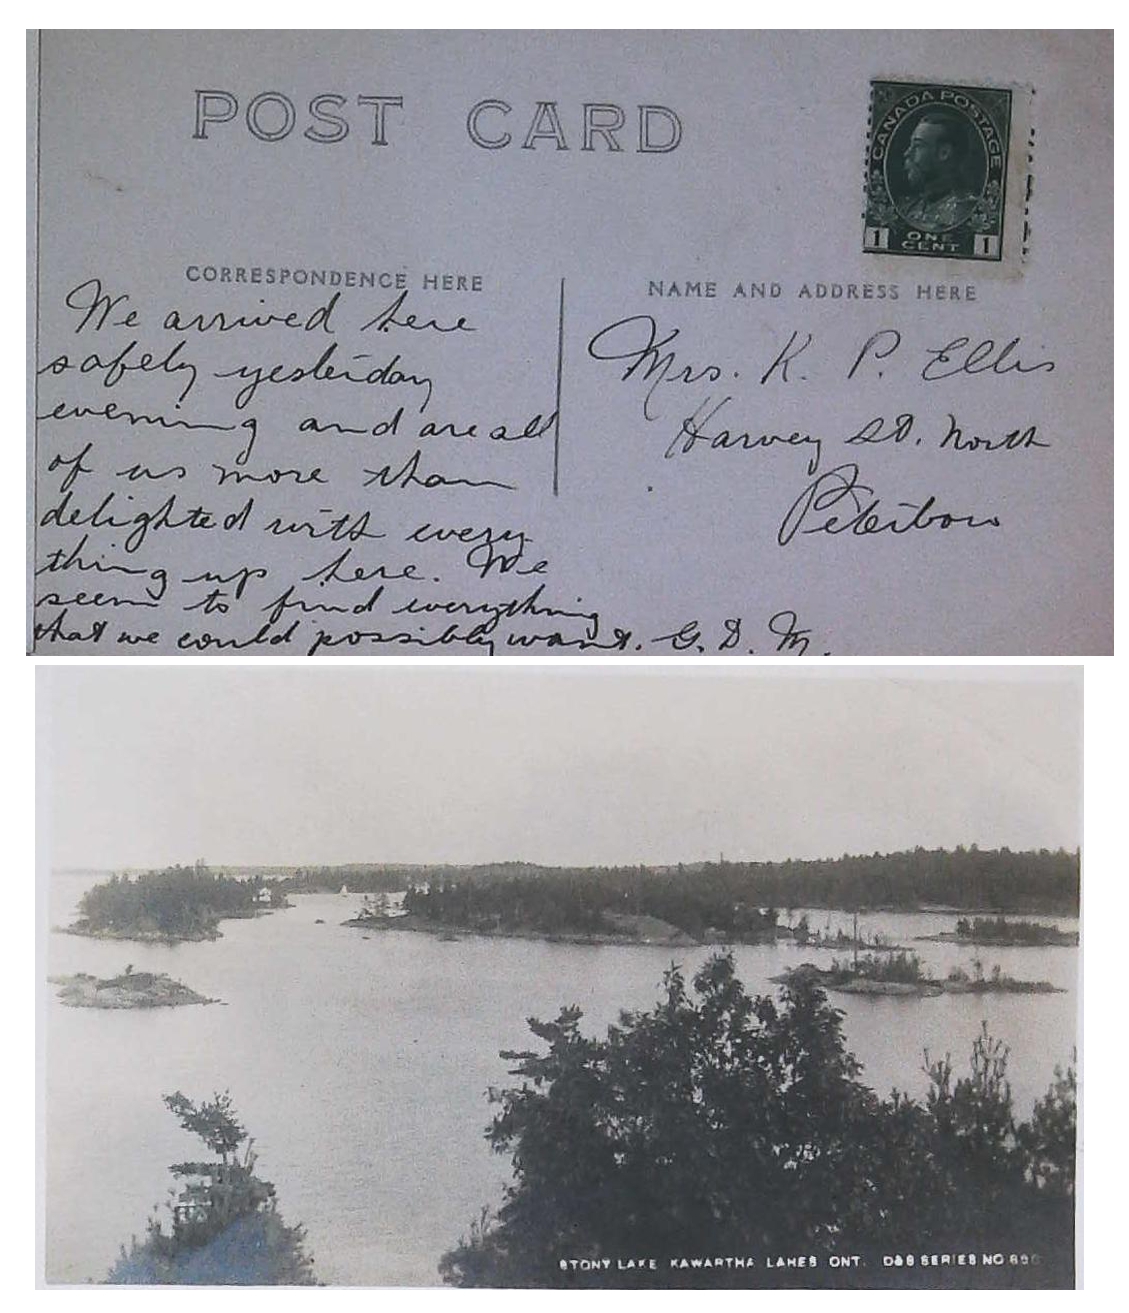 POST CARD
CANADA POSTAGE
1 ONE CENT 1
CORRESPONDENCE HERE
We arrived here
safely yesterday
evening and are all
of us more than
delighted with every
thing up here. We
seem to find everything
that we could possibly want. G. D. M.
NAME AND ADDRESS HERE
Mrs. K. P. Ellis
Harvey St. North
Peterboro
STONY LAKE KAWARTHA LAKES ONT. D&S SERIES NO